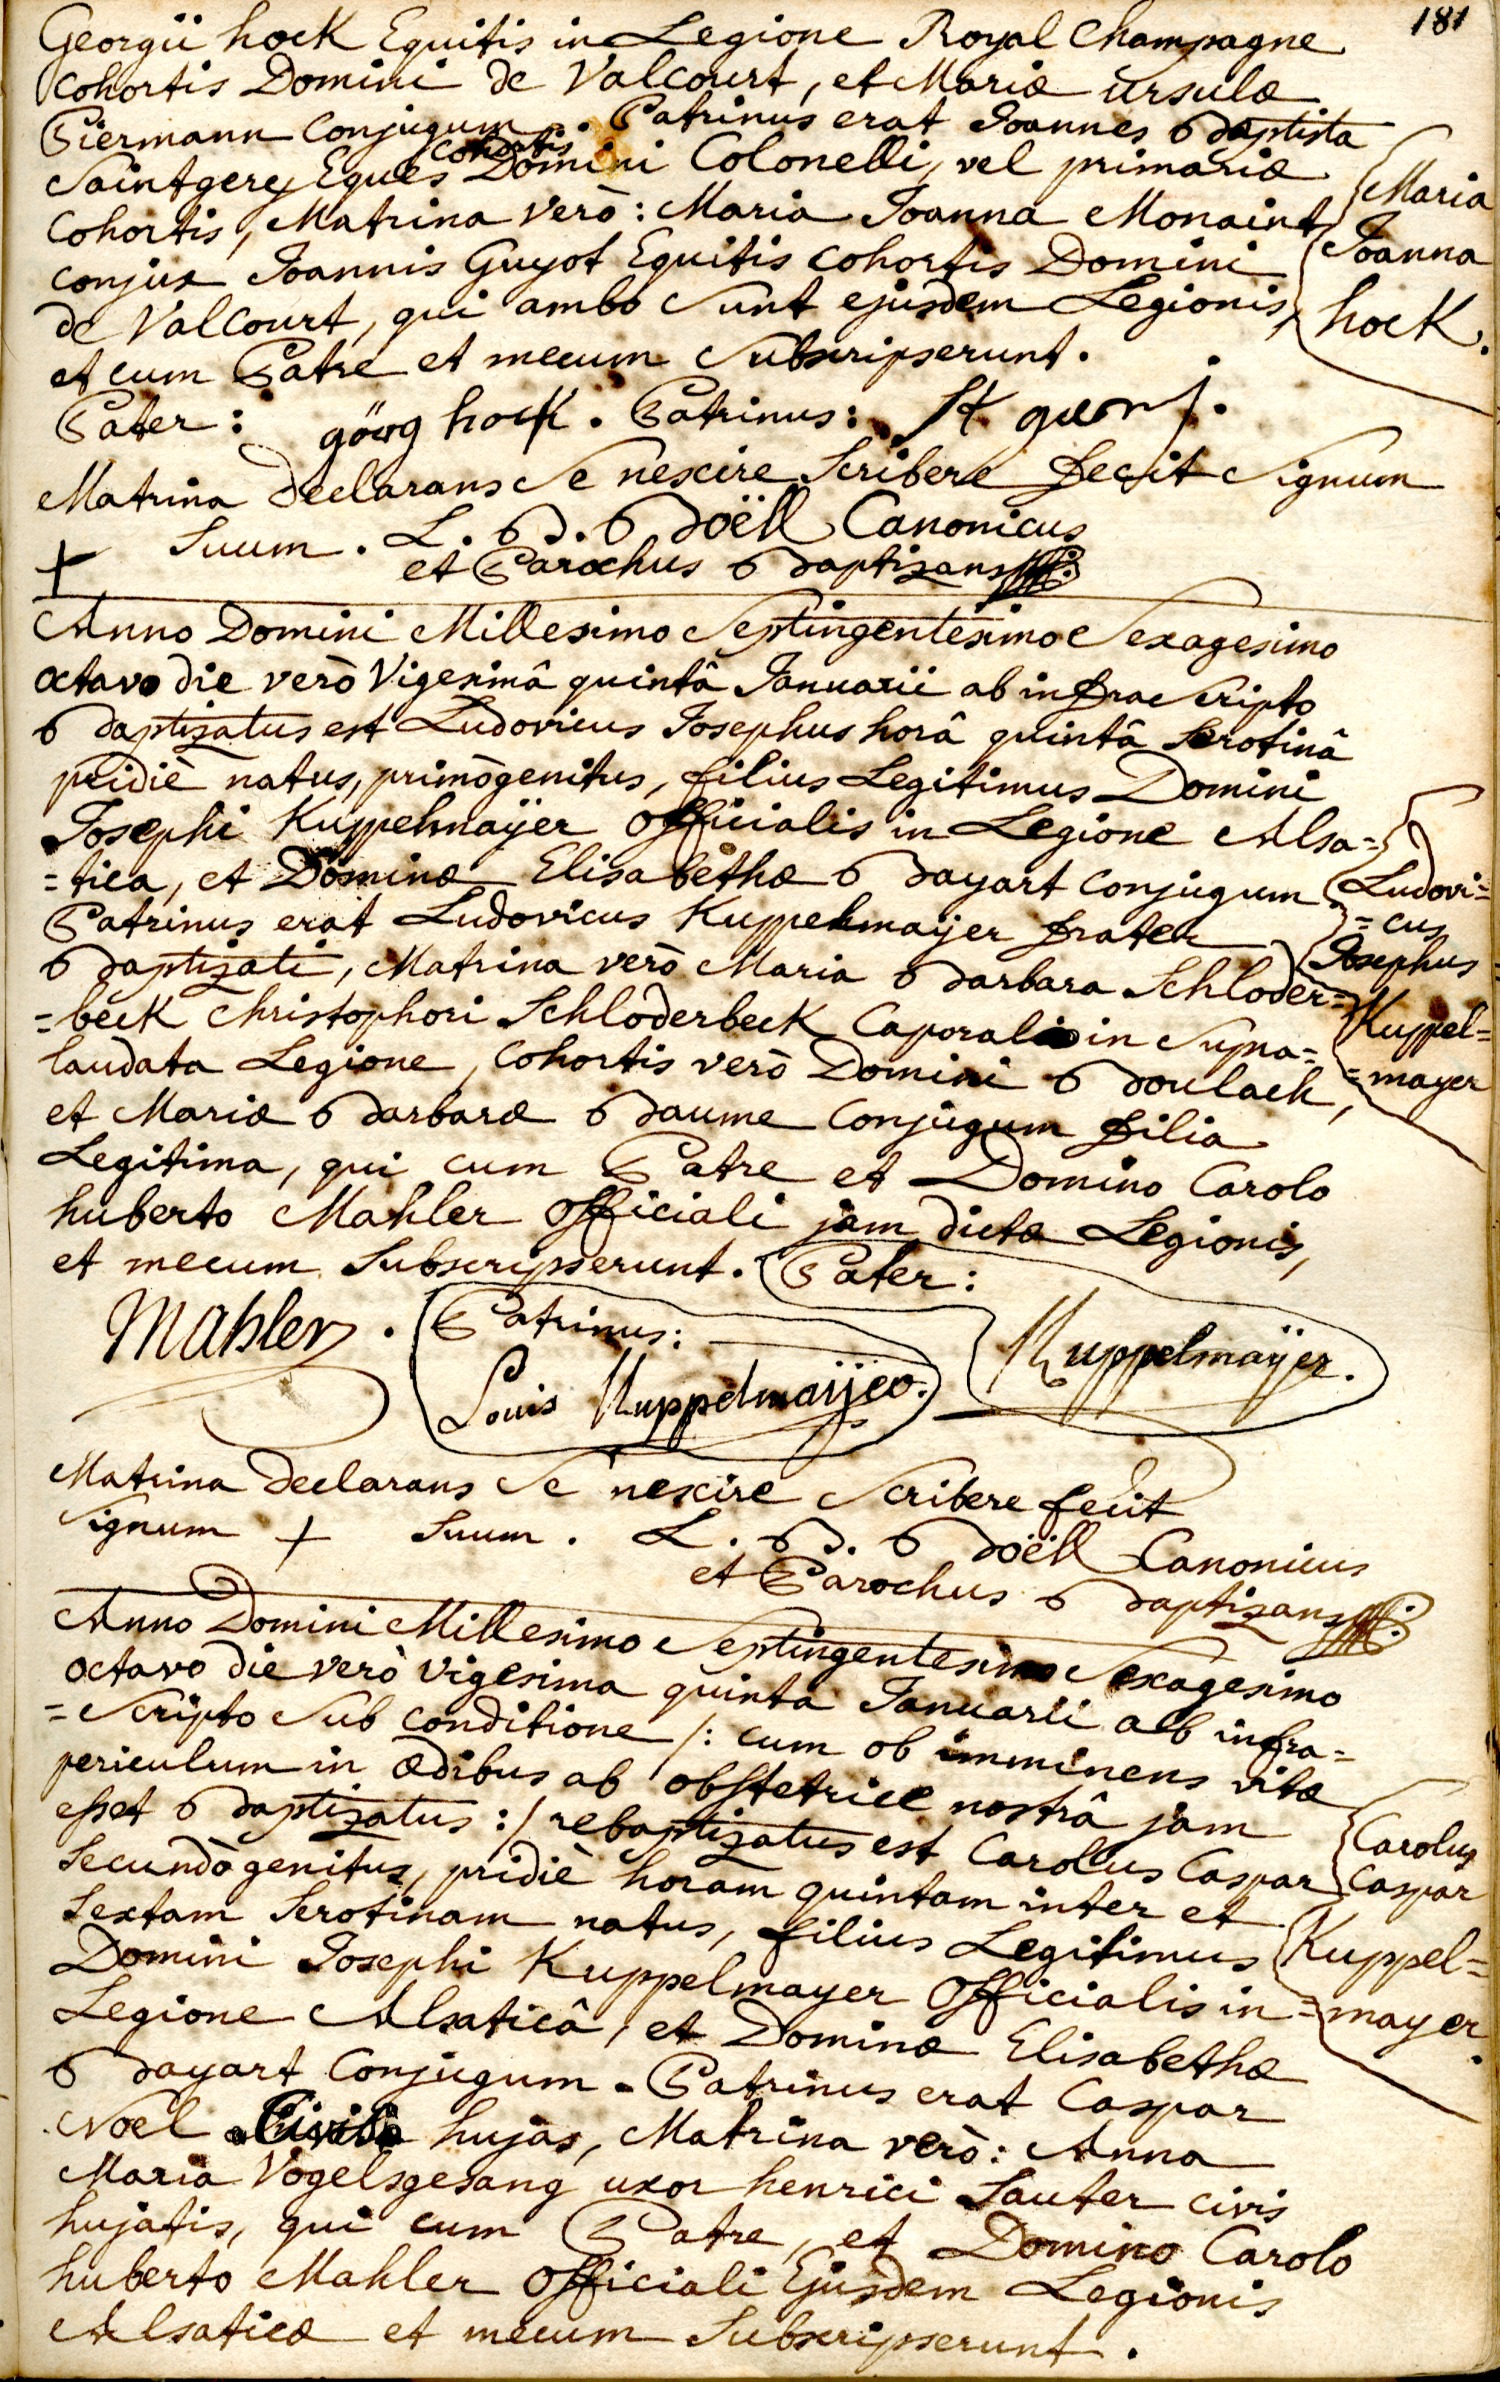 181
Georgii hock Equitis in Legione Royal Champagne
Cohortis Domini de Valcourt, et Mariæ ursulæ
Piermann Conjugum. Patrinus erat Joannes Baptista
cohortis
Saintgerej Eques Domini Colonelli, vel primariæ
Cohortis, Matrina verò: Maria Joanna Monaint
conjux Joannis Guyot Equitis cohortis Domini
de Valcourt, qui ambo Sunt ejusdem Legionis,
et cum Patre et mecum Subscripserunt.
Maria
Joanna
hock.
Pater: görg hock. Patrinus: St gerej.
Matrina declarans Se nescire Scribere fecit Signum
+ Suum. L. B. Boëll Canonicus
et Parochus Baptizans
Anno Domini Millesimo Septingentesimo Sexagesimo
octavo die verò Vigesimâ quintâ Januarii ab infra Scripto
Baptizatus est Ludovicus Josephus horâ quintâ Serotinâ
pridiè natus, primògenitus, filius Legitimus Domini
Josephi Kuppelmaÿer officialis in Legione Alsa=
=tica, et Dominæ Elisabethæ Bayart conjugum.
Patrinus erat Ludovicus Kuppelmaÿer frater
Baptizati, Matrina verò Maria Barbara Schloder=
=beck Christophori Schloderbeck Caporalis in Supra=
laudata Legione, Cohortis verò Domini Boulach,
et Mariæ Barbaræ Baume Conjugum filia
Legitima, qui cum Patre et Domino Carolo
huberto Mahler officiali jam dictæ Legionis,
et mecum Subscripserunt. Pater:
Ludovi=
=cus
Josephus
Kuppel=
=mayer
Mahler. Patrinus: Kuppelmaÿer.
Louis Kuppelmaijer.
Matrina declarans Se nescire Scribere fecit
Signum + Suum. L. B. Boëll Canonicus
et Parochus Baptizans
Anno Domini Millesimo Septingentesimo Sexagesimo
octavo die verò vigesima quinta Januarii ab infra=
=Scripto Sub conditione /: cum ob imminens vitæ
periculum in ædibus ab obstetrice nostrâ jam
esset Baptizatus :/ rebaptizatus est Carolus Caspar
Secundògenitus, pridiè horam quintam inter et
Sextam Serotinam natus, filius Legitimus
Domini Josephi Kuppelmayer officialis in
Legione Alsaticâ, et Dominæ Elisabethæ
Bayart Conjugum. Patrinus erat Caspar
Noel Civis hujas, Matrina verò: Anna
Maria Vogelsgesang uxor henrici Sauter civis
hujatis, qui cum Patre, et Domino Carolo
huberto Mahler officiali Ejusdem Legionis
Alsaticæ et mecum Subscripserunt.
Carolus
Caspar
Kuppel=
=mayer.